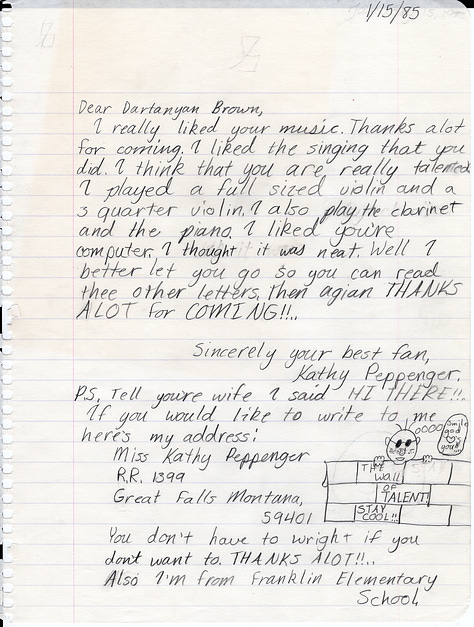 1/15/85
Dear Dartanyan Brown,
I really liked your music. Thanks alot
for coming. I liked the singing that you
did. I think that you are really talented
I played a full sized violin and a
3 quarter violin. I also play the clarinet
and the piano. I liked you're
computer. I thought it was neat. Well I
better let you go so you can read
thee other letters. Then agian THANKS
ALOT for COMING!!..
Sincerely your best fan,
Kathy Peppenger.
P.S. Tell you're wife I said HI THERE!!.
If you would like to write to me
here's my address:
Smile
god
you!!
Miss Kathy Peppenger
R.R. 1399
Great Falls Montana,
59401
THE
Wall
OF
TALENT!
STAY
COOL!!
You don't have to wright if you
don't want to. THANKS ALOT!!..
Also I'm from Franklin Elementary
School.